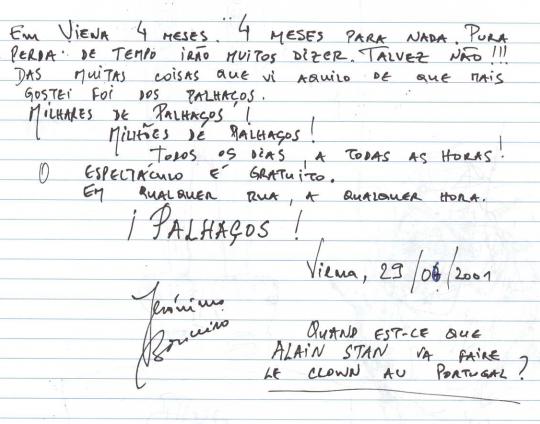 Em Viena 4 meses. 4 meses para nada. Pura
perda de tempo irão muitos dizer. Talvez não!!!
Das muitas coisas que vi aquilo de que mais
gostei foi dos palhaços.
Milhares de palhaços!
Milhões de palhaços!
Todos os dias, a todas as horas!
O espectáculo é gratuito.
Em qualquer rua, a qualquer hora.
¡ Palhaços !
Viena, 29/06/2001
Jerónimo
Quand est-ce que
Alain Stan va faire
le clown au Portugal?